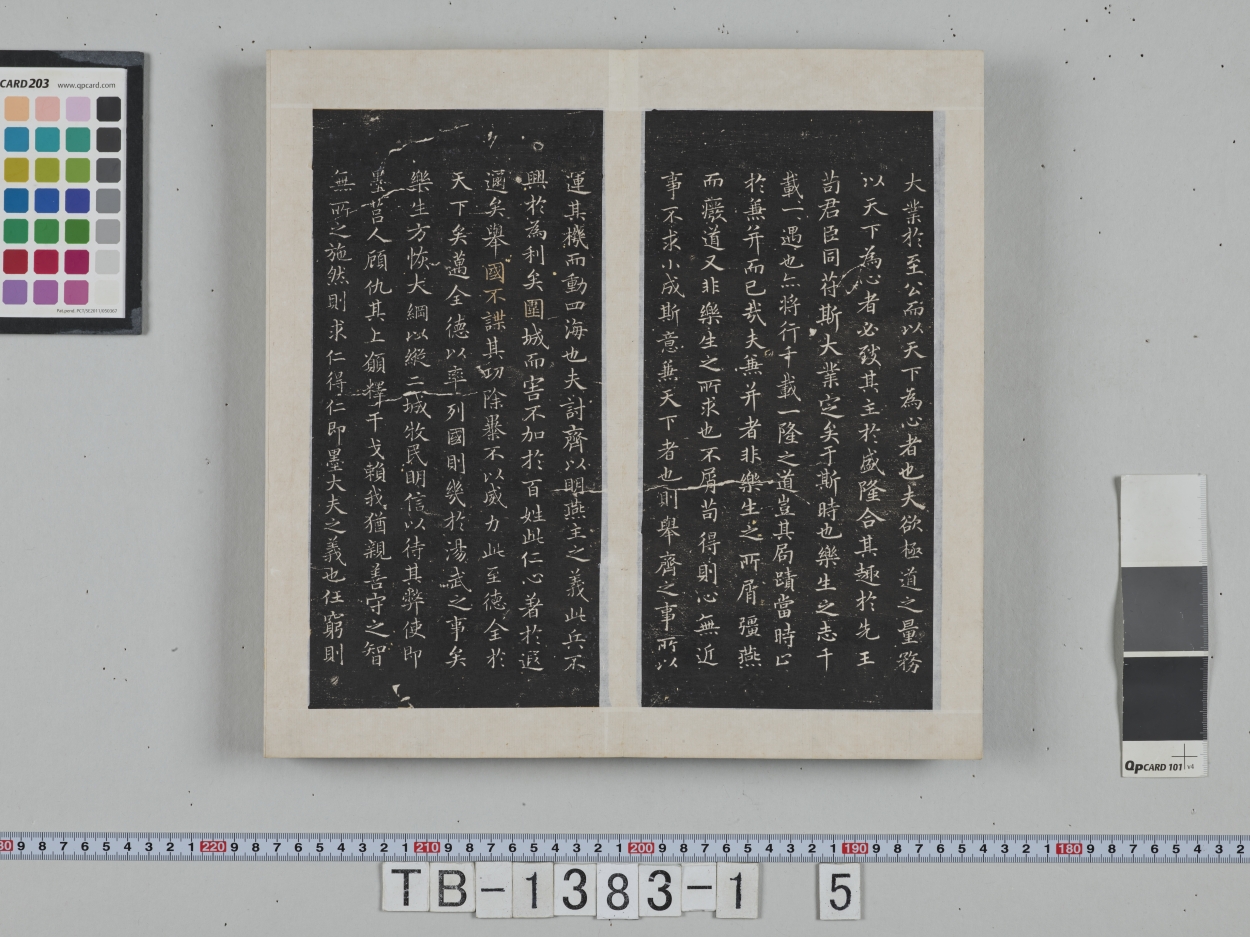 大業於至公而以天下為心者也夫欲極道之量務
以天下為心者必致其主於盛隆合其趣於先王
苟君臣同苻斯大業定矣于斯時也樂生之志千
載一遇也亦將行千載一隆之道豈其局蹟當時止
於兼并而已哉夫兼并者非樂生之所屑彊燕
而廢道又非樂生之所求也不屑苟得則心無近
事不求小成斯意兼天下者也則舉齊之事所以
運其機而動四海也夫討齊以明燕主之義此兵不
興於為利矣圍城而害不加於百姓此仁心著於遐
邇矣舉國不謀其功除暴不以威力此至德全於
天下矣邁全德以率列國則幾於湯武之事矣
樂生方恢大綱以縱二城牧民明信以待其弊使即
墨莒人顧仇其上願釋干戈賴我猶親善守之智
無所之施然則求仁得仁即墨大夫之義也任窮則
CARD 203 www.qpcard.com
QPCARD 101 v4
30 9 8 7 6 5 4 3 2 1 220 9 8 7 6 5 4 3 2 1 210 9 8 7 6 5 4 3 2 1 200 9 8 7 6 5 4 3 2 1 190 9 8 7 6 5 4 3 2 1 180 9 8 7 6 5 4 3 2
TB-1383-1 5